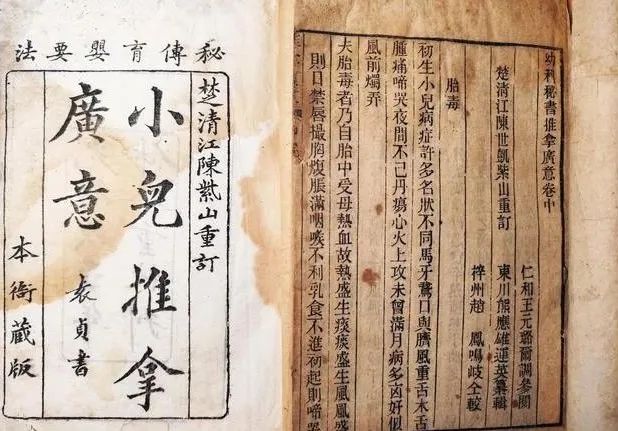 秘傳育嬰要法
楚清江陳紫山重訂
小兒推拿
廣意
袁貞書
本衙藏版
幼科秘書推拿廣意卷中
楚清江陳世凱紫山重訂
仁和王元璐爾調參閱
東川熊應雄運英纂輯
梓州趙 鳳鳴岐仝較
胎毒
初生小兒病症許多名狀不同馬牙鵞口與臍風重舌木舌
腫痛啼哭夜間不已丹瘍心火上攻未曾滿月病多凶好似
風前燭弄
夫胎毒者乃自胎中受母熱血故熱盛生痰痰盛生風風盛
則口禁唇撮胸腹脹滿咽喉不利乳食不進初起則啼哭